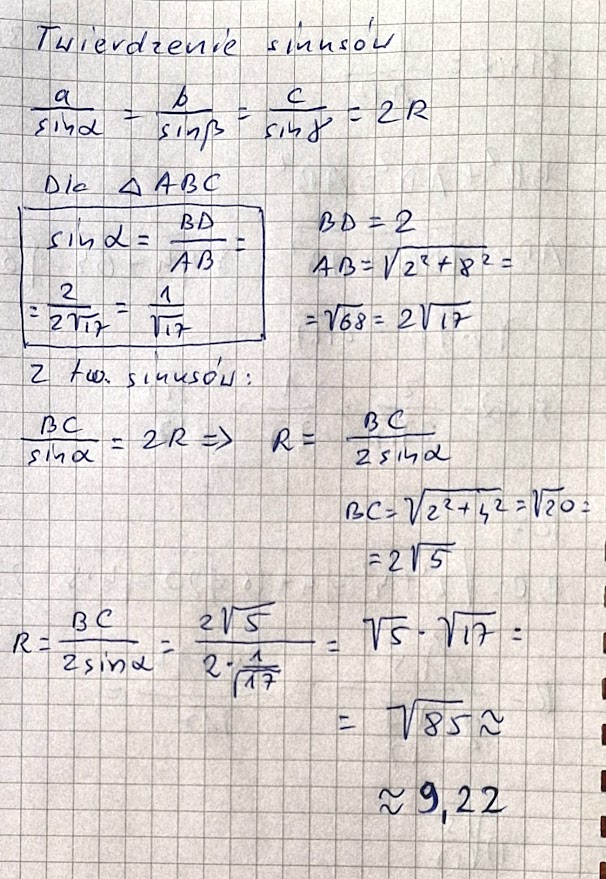 Twierdzenie sinusów
a/sinα = b/sinβ = c/sinγ = 2R
Dla △ABC
sinα = BD/AB =
= 2/2√17 = 1/√17
BD = 2
AB = √2²+8² =
= √68 = 2√17
Z tw. sinusów:
BC/sinα = 2R => R = BC/2sinα
BC = √2²+4² = √20 =
= 2√5
R = BC/2sinα = 2√5/2·1/√17 = √5 · √17 =
= √85 ≈
≈ 9,22